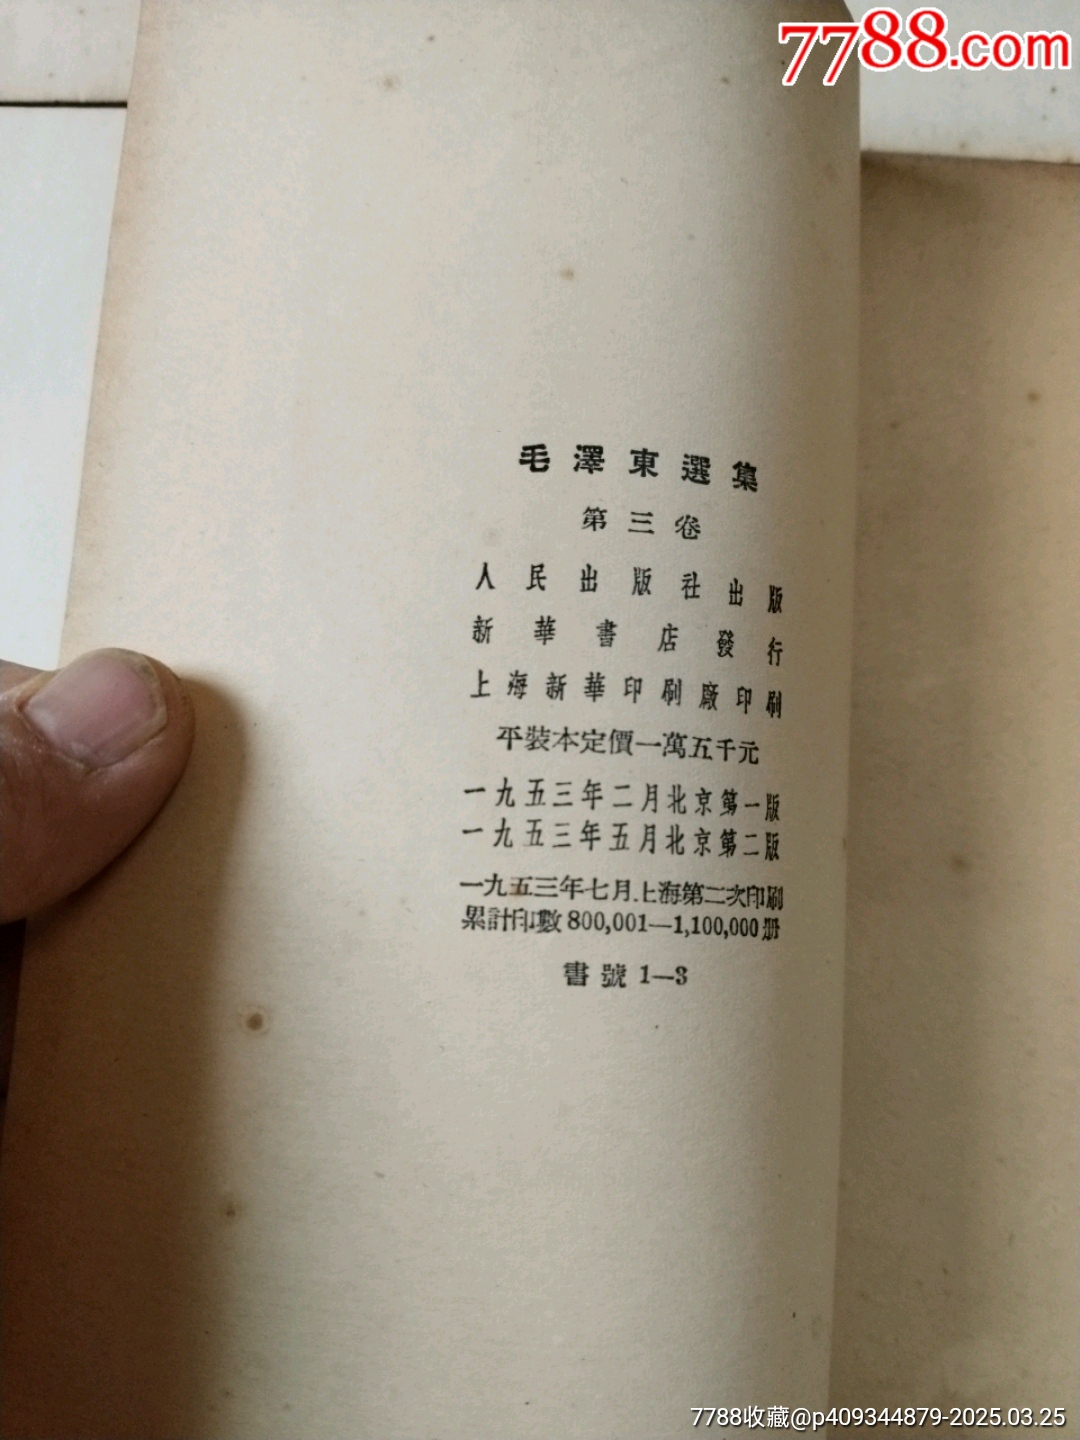 7788.com
毛澤東選集
第三卷
人民出版社出版
新華書店發行
上海新華印刷廠印刷
平裝本定價一萬五千元
一九五三年二月北京第一版
一九五三年五月北京第二版
一九五三年七月上海第二次印刷
累計印數800,001—1,100,000册
書號1—3
7788收藏@p409344879-2025.03.25